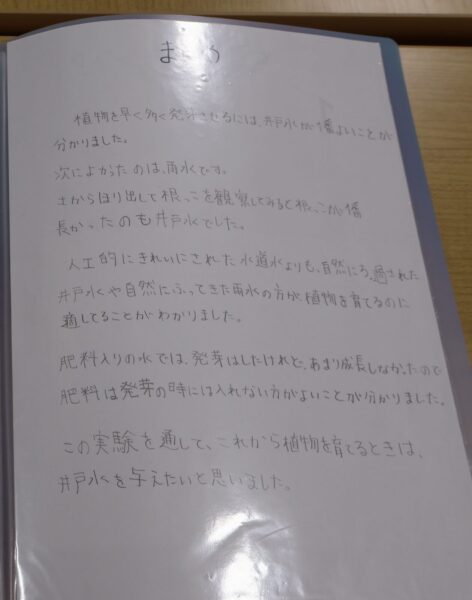 まとめ
植物を早く多く発芽させるには、井戸水が一番よいことが
分かりました。
次によかったのは、雨水です。
土からほり出して根っこを観察してみると根っこが一番
長かったのも井戸水でした。
人工的にきれいにされた水道水よりも、自然にろ過された
井戸水や自然にふってきた雨水の方が植物を育てるのに
適してることがわかりました。
肥料入りの水では、発芽はしたけれど、あまり成長しなかったので
肥料は発芽の時には入れない方がよいことが分かりました。
この実験を通して、これから植物を育てるときは、
井戸水を与えたいと思いました。